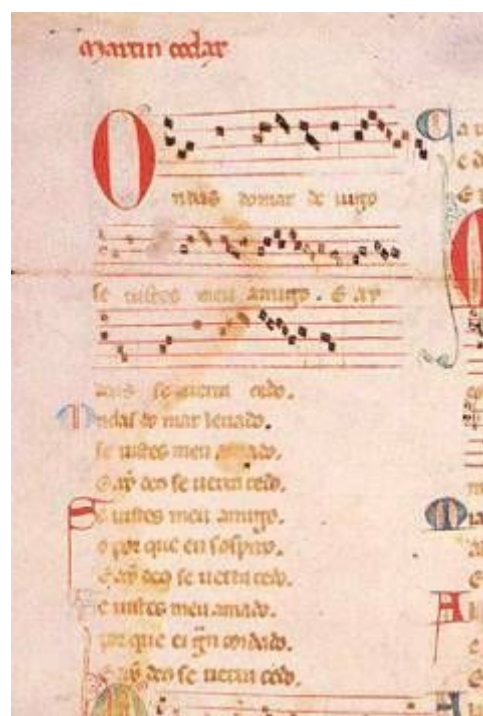 Martin codax
Ondas do mar de uigo
se uistes meu amigo. E ay
deus se uerra cedo.
Ondas do mar leuado.
se uistes meu amado.
E ay deo se uerra cedo.
Se uistes meu amigo.
o por que eu sospiro.
E ay deo se uerra cedo.
Se uistes meu amado.
por que ei gran coidado.
E ay deo se uerra cedo.